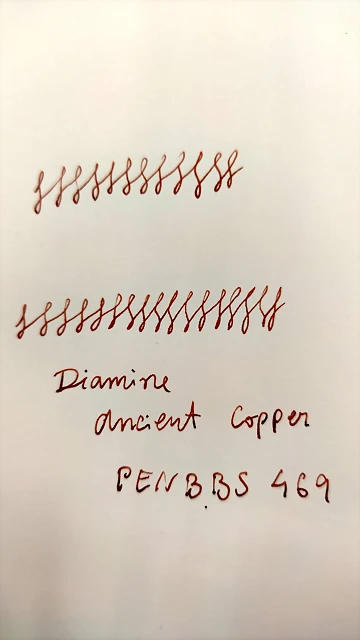 Diamine
Ancient Copper
PENBBS 469